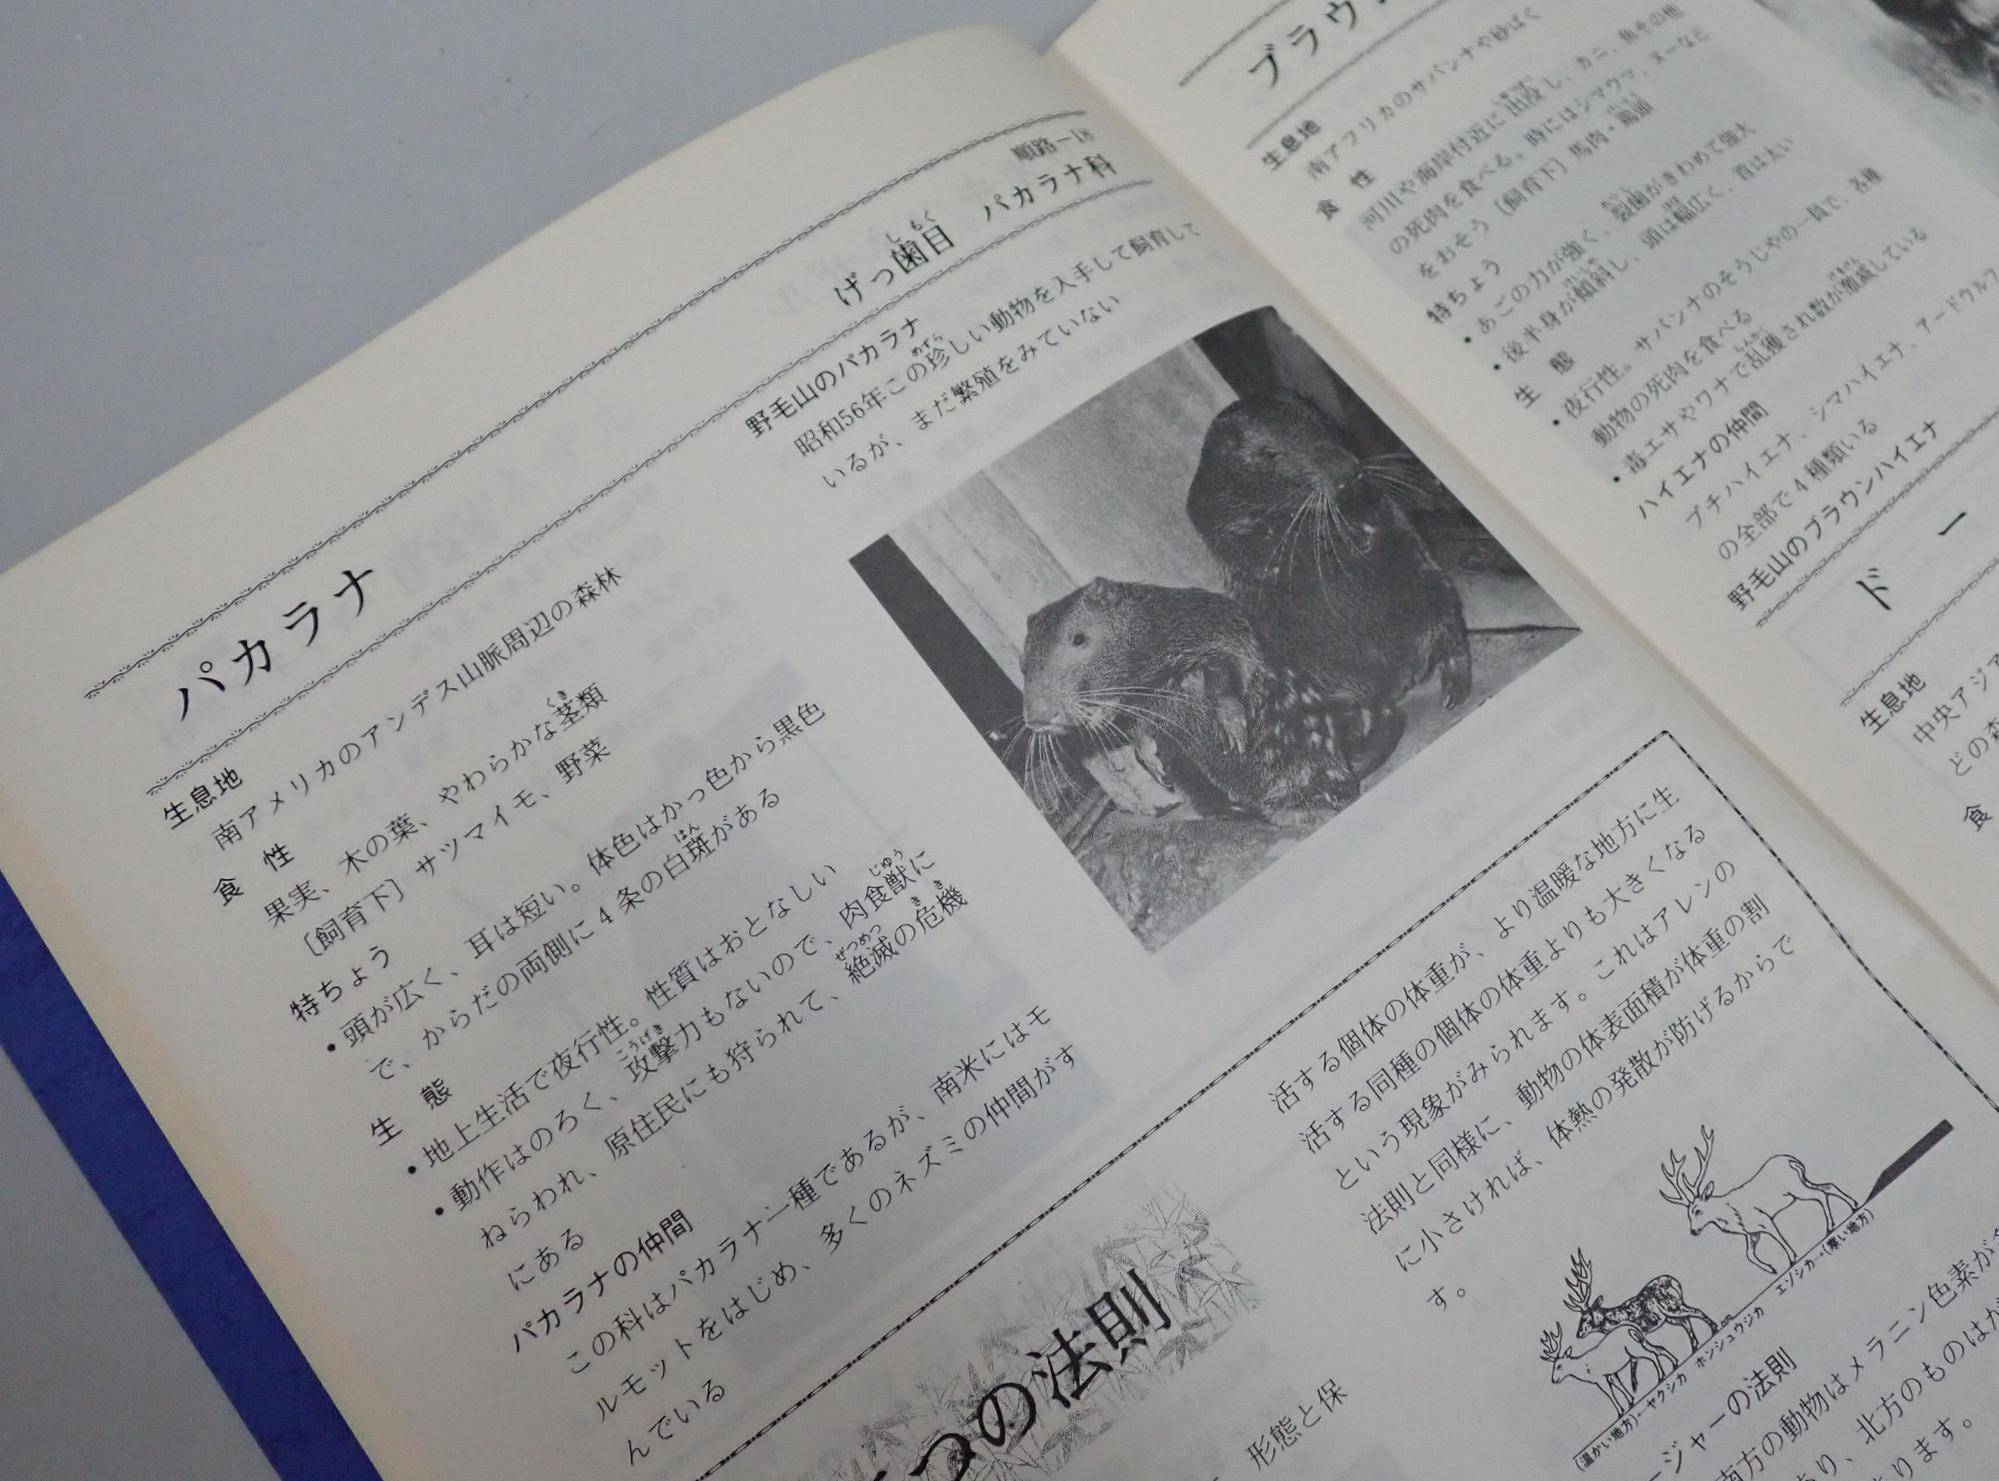 順路－18
げっ歯目 パカラナ科
しもく
パカラナ
生息地
南アメリカのアンデス山脈周辺の森林
食 性
果実、木の葉、やわらかな茎類
くき
〔飼育下〕サツマイモ、野菜
特ちょう
・頭が広く、耳は短い。体色はかっ色から黒色
で、からだの両側に4条の白斑がある
はん
生 態
・地上生活で夜行性。性質はおとなしい
・動作はのろく、攻撃力もないので、肉食獣に
こうげき じゅう
ねらわれ、原住民にも狩られて、絶滅の危機
ぜつめつ き
にある
パカラナの仲間
この科はパカラナ一種であるが、南米にはモ
ルモットをはじめ、多くのネズミの仲間がす
んでいる
野毛山のパカラナ
昭和56年この珍しい動物を入手して飼育して
めずら
いるが、まだ繁殖をみていない
つの法則
形態と保
活する個体の体重が、より温暖な地方に生
活する同種の個体の体重よりも大きくなる
という現象がみられます。これはアレンの
法則と同様に、動物の体表面積が体重の割
に小さければ、体熱の発散が防げるからで
す。
(温かい地方)←ヤクシカ ホンシュウシカ エゾシカ→(寒い地方)
ージャーの法則
南方の動物はメラニン色素が
あり、北方のものはか
ります。
ブラウン
生息地
南アフリカのサバンナや砂ばく
食 性
河川や海岸付近に出没し、カニ、魚その他
しゅつぼつ
の死肉を食べる。時にはシマウマ、ヌーなど
をおそう〔飼育下〕馬肉・鶏頭
特ちょう
・あごの力が強く、裂歯がきわめて強大
・後半身が傾斜し、頭は幅広く、首は太い
けいしゃ
生 態
・夜行性。サバンナのそうじやの一員で、各種
動物の死肉を食べる
・毒エサやワナで乱獲され数が激減している
らんかく げきげん
ハイエナの仲間
ブチハイエナ、シマハイエナ、アードウルフ
の全部で4種類いる
野毛山のブラウンハイエナ
ドー
生息地
中央アジア
どの森
食